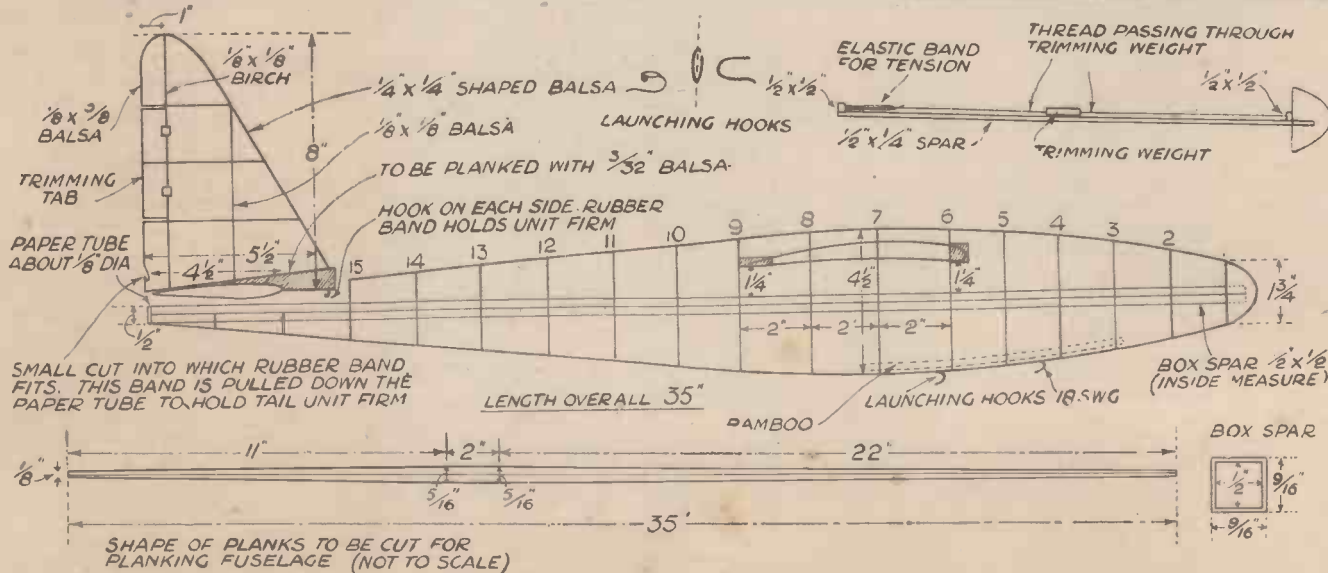 1"
1/8" x 1/8"
BIRCH
1/8 x 3/8
BALSA
1/4" x 1/4" SHAPED BALSA
1/8" x 1/8" BALSA
8"
TO BE PLANKED WITH 3/32" BALSA
TRIMMING
TAB
HOOK ON EACH SIDE. RUBBER
BAND HOLDS UNIT FIRM
PAPER TUBE
ABOUT 1/8" DIA
5 1/2"
4 1/2"
1/2"
SMALL CUT INTO WHICH RUBBER BAND
FITS. THIS BAND IS PULLED DOWN THE
PAPER TUBE TO HOLD TAIL UNIT FIRM
LAUNCHING HOOKS
ELASTIC BAND
FOR TENSION
THREAD PASSING THROUGH
TRIMMING WEIGHT
1/2" x 1/2"
1/2" x 1/2"
1/2" x 1/4" SPAR
TRIMMING WEIGHT
15 14 13 12 11 10 9 8 7 6 5 4 3 2
1 1/4"
4 1/2"
1 1/4"
1 3/4"
2" 2" 2"
BOX SPAR 1/2" x 1/2"
(INSIDE MEASURE)
LAUNCHING HOOKS 18.SWG
BAMBOO
LENGTH OVERALL 35"
11" 2" 22"
1/8"
5/16" 5/16"
35"
SHAPE OF PLANKS TO BE CUT FOR
PLANKING FUSELAGE (NOT TO SCALE)
BOX SPAR
1/2"
9/16"
9/16"